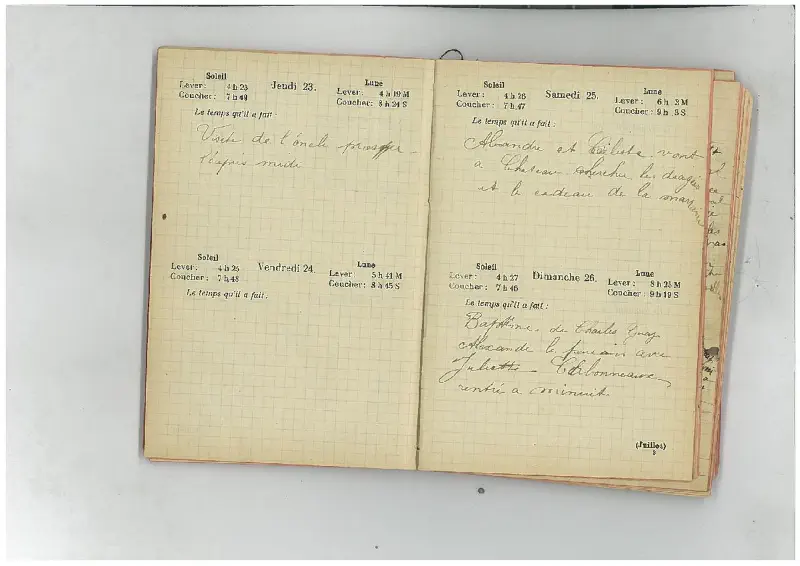 Soleil
Lever: 4 h 25
Coucher: 7 h 49
Jeudi 23.
Lune
Lever: 4 h 19 M
Coucher: 8 h 24 S
Le temps qu'il a fait:
Visite de l'oncle prosper
l'après midi
Soleil
Lever: 4 h 25
Coucher: 7 h 48
Vendredi 24.
Lune
Lever: 5 h 41 M
Coucher: 8 h 45 S
Le temps qu'il a fait.
Soleil
Lever: 4 h 26
Coucher: 7 h 47
Samedi 25.
Lune
Lever: 6 h 3 M
Coucher: 9 h 5 S
Le temps qu'il a fait:
Alexandre et vont
a Chateau chercher les dragées
et le cadeau de la marraine
Soleil
Lever: 4 h 27
Coucher: 7 h 46
Dimanche 26.
Lune
Lever: 8 h 25 M
Coucher: 9 h 19 S
Le temps qu'il a fait:
Baptême de Charles
Alexandre le parrain avec
Juliette
rentré a minuit
(Juillet)